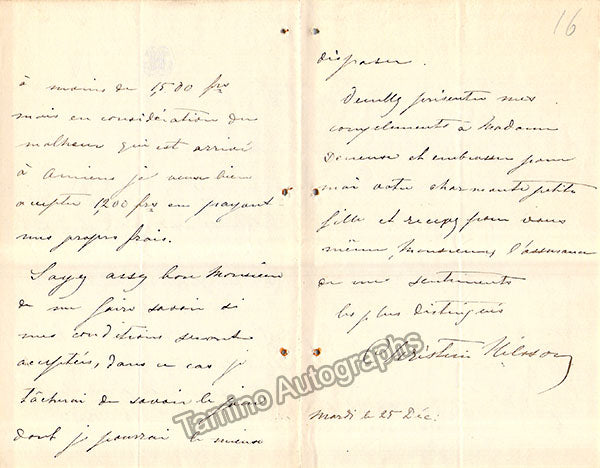 à moins de 1,500 frs
mais en considération du
malheur qui est arrivé
à Amiens je veux bien
accepter 1,200 frs en payant
mes propres frais.
Soyez assez bon Monsieur
de me faire savoir si
mes conditions seront
acceptées, dans ce cas je
tâcherai de savoir le jour
dont je pourrai le mieux
16
disposer.
Veuillez présenter mes
compliments à Madame
et embrasser pour
moi votre charmante petite
fille et recevez pour vous
même, Monsieur, l'assurance
de mes sentiments
les plus distingués
Christine Nilsson
Mardi le 25 Déc:
Tamino Autographs